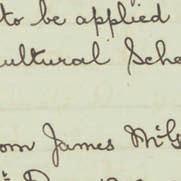 to be applied
cultural Sche
om James McG